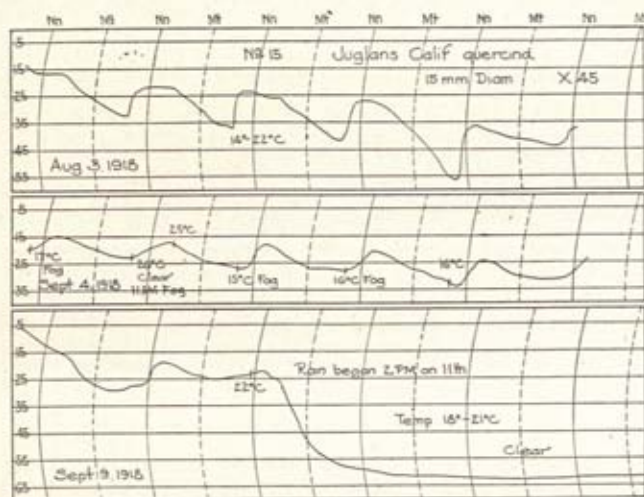 Nn Mt Nn Mt Nn Mt Nn Mt Nn Mt Nn
5
15
25
35
45
55
No 15 Juglans Calif quercina
15 mm Diam X 45
14°-22°C
Aug 3, 1918
5
15
25
35
25°C
17°C
Fog
20°C
Clear
11 AM Fog
15°C Fog
16°C Fog
16°C
Sept 4, 1918
5
15
25
35
45
55
65
Rain began 2 PM on 11th
22°C
Temp 18°-21°C
Clear
Sept 9, 1918